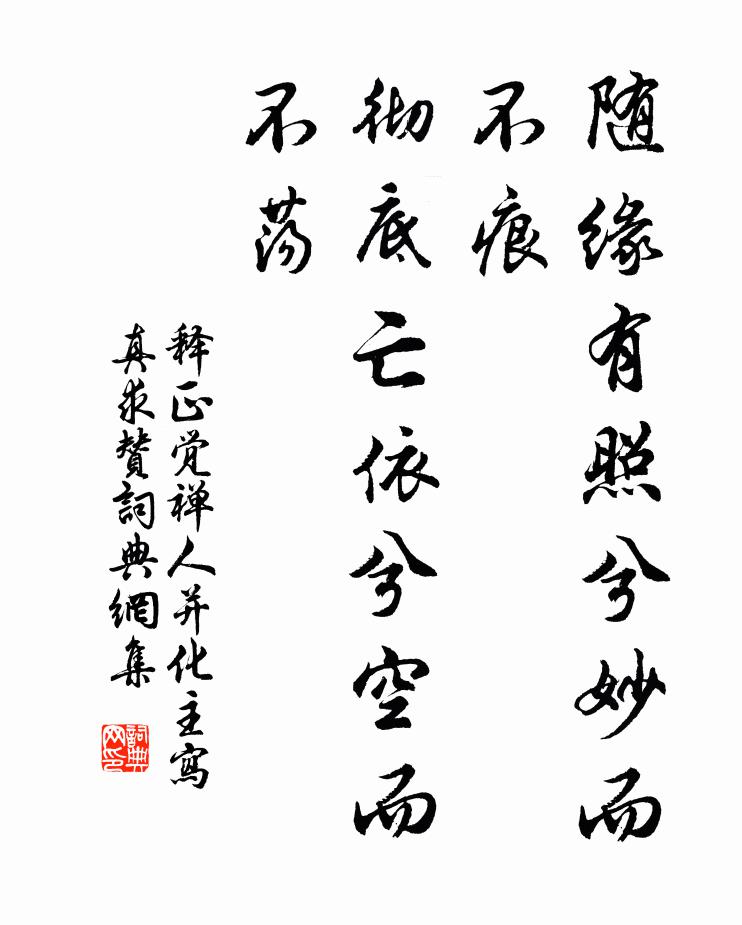 随缘有照兮妙而
不痕
彻底亡依兮空而
不荡
释正觉禅人并化主寫
真求赞詞典網集
詞典
网印